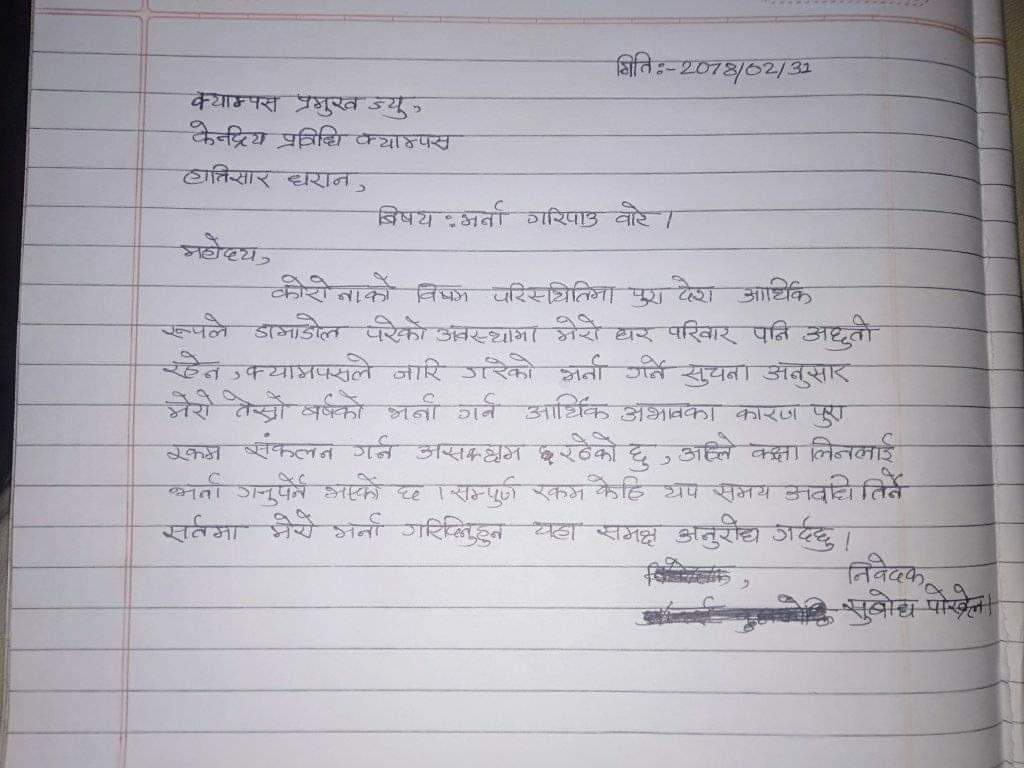 मिति:-2078/02/31
क्याम्पस प्रमुख ज्यु,
केन्द्रिय प्रविधि क्याम्पस
हात्तिसार धरान,
बिषय :भर्ना गरिपाउ वारे ।
महोदय,
कोरोनाको विषम परिस्थितिमा पुरा देश आर्थिक
रूपले डामाडोल परेको अवस्थामा मेरो घर परिवार पनि अछुतो
रहेन ,क्यामपसले जारि गरेको भर्ना गर्ने सुचना अनुसार
मेरो तेस्रो बर्षको भर्ना गर्न आर्थिक अभावका कारण पुरा
रकम संकलन गर्न असक्षम रहेको छु , अहिले कक्षा लिनलाई
भर्ना गनुपर्ने भएको छ । सम्पुर्ण रकम केहि थप समय अवधि तिर्ने
सर्तमा मेरो भर्ना गरिदिनुहुन यहा समक्ष अनुरोध गर्दछु ।
निवेदक,
सुबोध पोखेल।